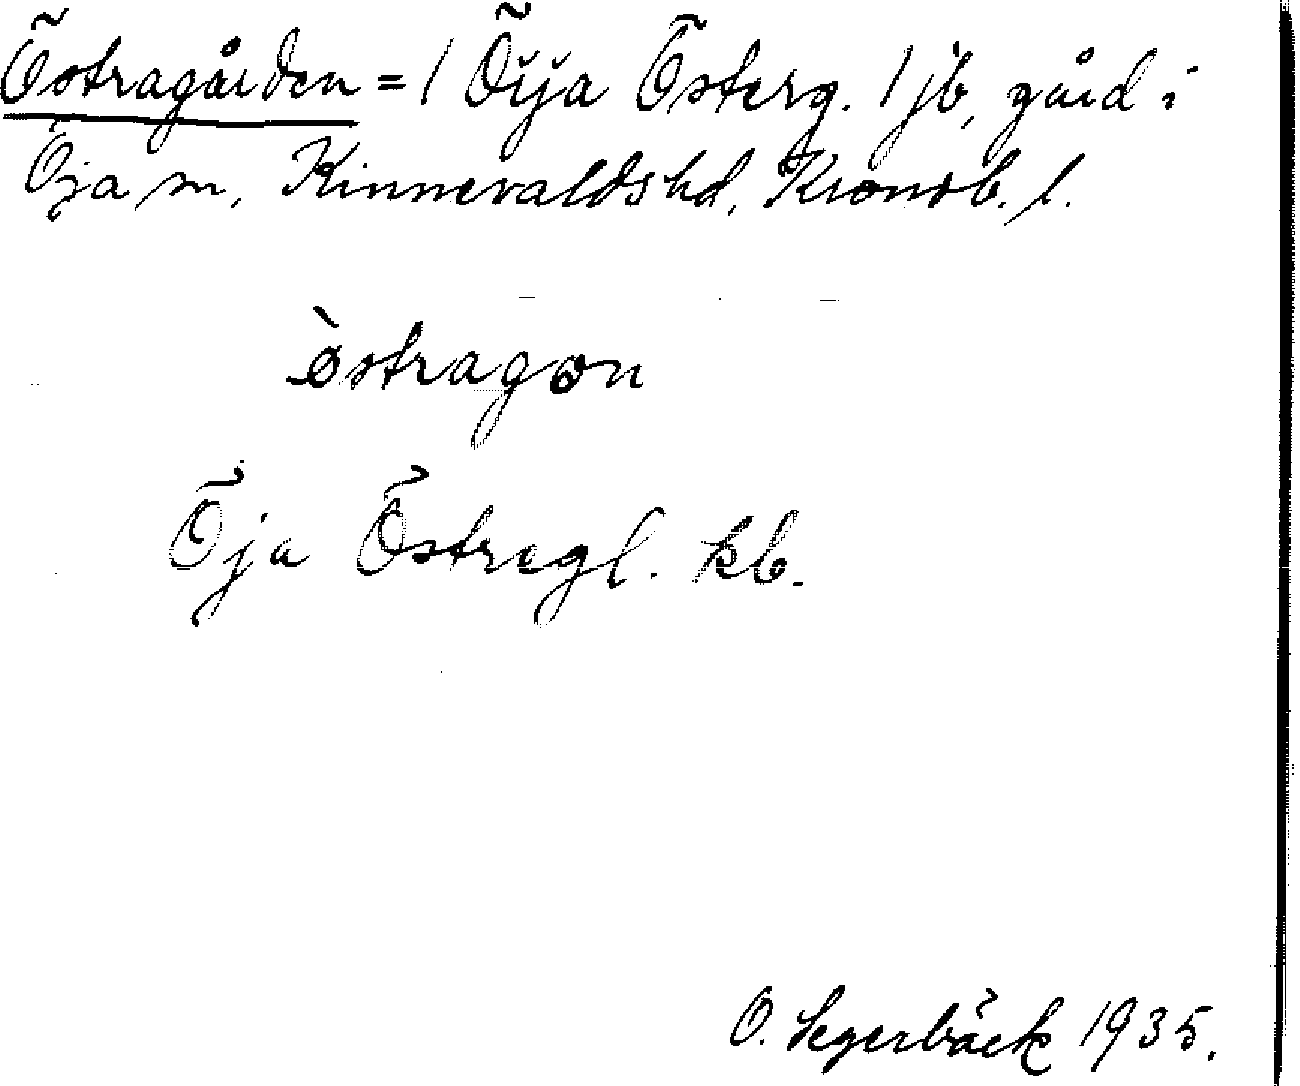 Östragården = / Öija Österg. / jb, gård i
Öja sn, Kinnevaldshd, Kronob. l.
òstragon
Öja Östregl. kb.
O. Segerbäck 1935.